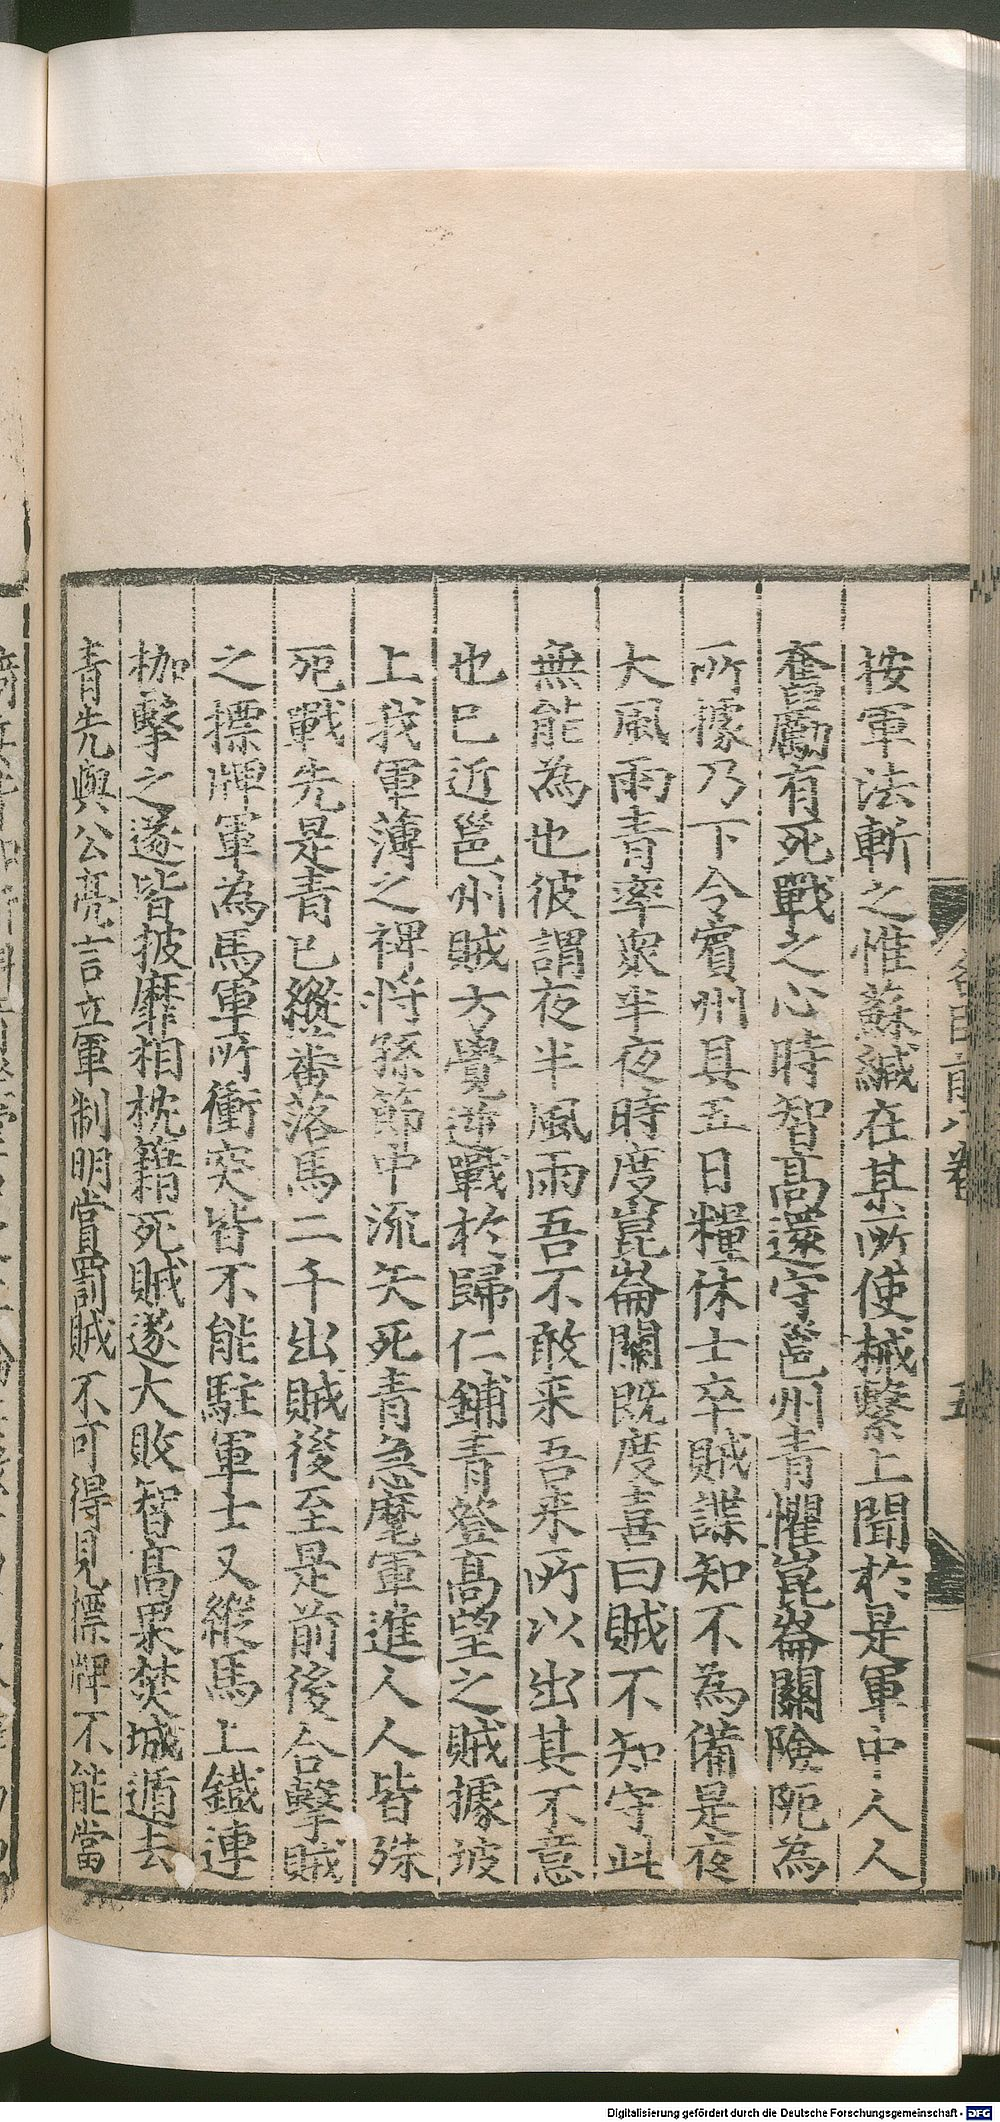 按軍法斬之惟蘇緘在某所使械繫上聞於是軍中人人
奮勵有死戰之心時智高還守邕州青懼崑崙關險阨為
所據乃下令賓州具五日糧休士卒賊諜知不為備是夜
大風雨青率衆半夜時度崑崙關既度喜曰賊不知守此
無能為也彼謂夜半風雨吾不敢来吾来所以出其不意
也已近邕州賊方覺逆戰於歸仁鋪青登高望之賊據坡
上我軍薄之裨将孫節中流矢死青急麾軍進人人皆殊
死戰先是青已縱蕃落馬二千出賊後至是前後合擊賊
之摽牌軍為馬軍所衝突皆不能駐軍士又縱馬上鐵連
枷擊之遂皆披靡相枕籍死賊遂大敗智高果焚城遁去
青先與公亮言立軍制明賞罰賊不可得見摽牌不能當
Digitalisierung gefördert durch die Deutsche Forschungsgemeinschaft - DFG